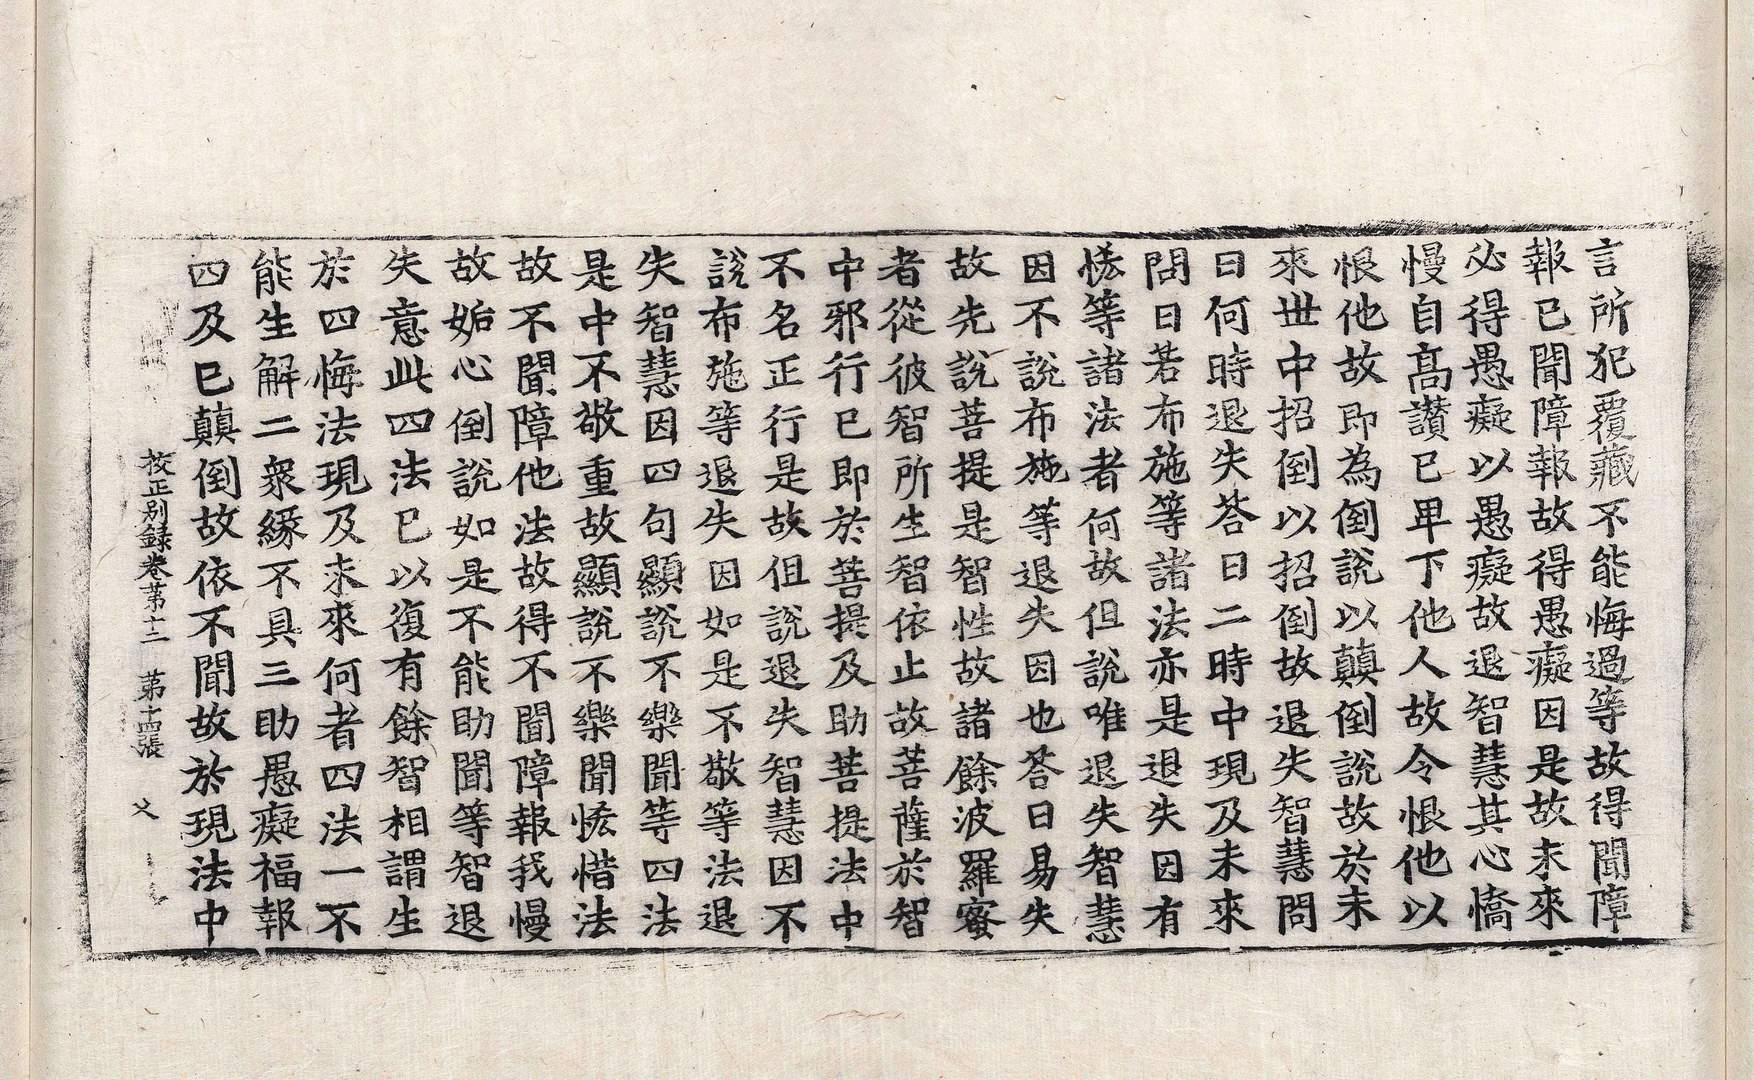 言所犯覆藏不能悔過等故得聞障
報已聞障報故得愚癡因是故未來
必得愚癡以愚癡故退智慧其心憍
慢自髙讃已卑下他人故令恨他以
恨他故即為倒說以顛倒說故於未
來世中招倒以招倒故退失智慧問
曰何時退失荅曰二時中現及未來
問曰若布施等諸法亦是退失因有
悋等諸法者何故但說唯退失智慧
因不說布施等退失因也荅曰易失
故先說菩提是智性故諸餘波羅蜜
者從彼智所生智依止故菩薩於智
中邪行已即於菩提及助菩提法中
不名正行是故但說退失智慧因不
說布施等退失因如是不敬等法退
失智慧因四句顯說不樂聞等四法
是中不敬重故顯說不樂聞悋惜法
故不聞障他法故得不聞障報我慢
故妬心倒說如是不能助聞等智退
失意此四法已以復有餘智相謂生
於四悔法現及未來何者四法一不
能生解二衆緣不具三助愚癡福報
四及已顛倒故依不聞故於現法中
校正别錄卷苐十二　苐十四張